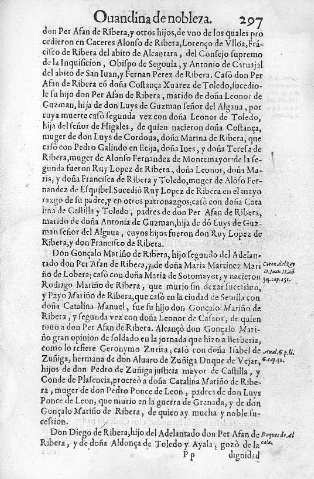 Ouandina de nobleza. 297
don Per Afan de Ribera, y otros hijos, de vno de los quales pro
cedieron en Caceres Alonso de Ribera, Lorenço de Vlloa, Frá-
cisco de Ribera del abito de Alcantara, del Consejo supremo
de la Inquisicion, Obispo de Segouia, y Antonio de Caruajal
del abito de San Iuan, y Fernan Perez de Ribera. Casò don Per
Afan de Ribera cõ doña Costança Xuarez de Toledo, sucedio-
le su hijo don Per Afan de Ribera, marido de doña Leonor de
Guzman, hija de don Luys de Guzman señor del Algaua, por
cuya muerte casò segunda vez con doña Leonor de Toledo,
hija del señor de Higales, de quien nacieron doña Costança,
muger de don Luys de Cordoua, doña Marina de Ribera, que
casò con Pedro Galindo en Ecija, doña Ines, y doña Teresa de
Ribera, muger de Alonso Fernandez de Montemayor: de la se-
gunda fueron Ruy Lopez de Ribera, doña Leonor, doña Ma-
ria, y doña Francisca de Ribera y Toledo, muger de Alõso Fer-
nandez de Esquibel. Sucediò Ruy Lopez de Ribera en el mayo
razgo de su padre, y en otros patronazgos: casò con doña Cata
lina de Castilla y Toledo, padres de don Per Afan de Ribera,
marido de doña Catalina de Guzman, hija de dõ Luys de Guz-
man señor del Algaua, cuyos hijos fueron don Ruy Lopez de
Ribera, y don Francisco de Ribera.
Don Gonçalo Mariño de Ribera, hijo segundo del Adelan-
tado don Per Afan de Ribera, y de doña Maria Martinez Mari
ño de Lobera: casò con doña Maria de Sotomayor, y nacieron
Rodrigo Mariño de Ribera, que murio sin dexar succession,
y Payo Mariño de Ribera, que casò en la ciudad de Seuilla con
doña Catalina Manuel, fue su hijo don Gonçalo Mariño de
Ribera, y segunda vez con doña Leonor de Cafaos, de quien
tono a don Per Afan de Ribera. Alcançò don Gonçalo Mari-
ño gran opinion de soldado en la jornada que hizo a Berberia,
como lo refiere Geronymo Zurita, casò con doña Isabel de
Zuñiga, hermana de don Aluaro de Zuñiga Duque de Vejar,
hijos de don Pedro de Zuñiga justicia mayor de Castilla, y
Conde de Plasencia, procreò a doña Catalina Mariño de Ribe-
ra, muger de don Pedro Ponce de Leon, padres de don Luys
Ponce de Leon, que murio en la guerra de Granada, y de don
Gonçalo Mariño de Ribera, de quien ay mucha y noble su-
cession.
Don Diego de Ribera, hijo del Adelantado don Per Afan de
Ribera, y de doña Aldonça de Toledo y Ayala, gozò de la
P p dignidad